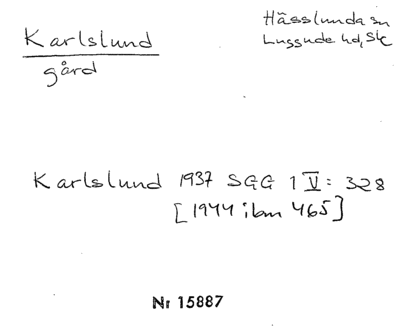 Karlslund
gård
Hässlunda sn
Luggude hd, Sk
Karlslund 1937 SGG 1 V: 328
[1944 ibm 465]
Nr 15887